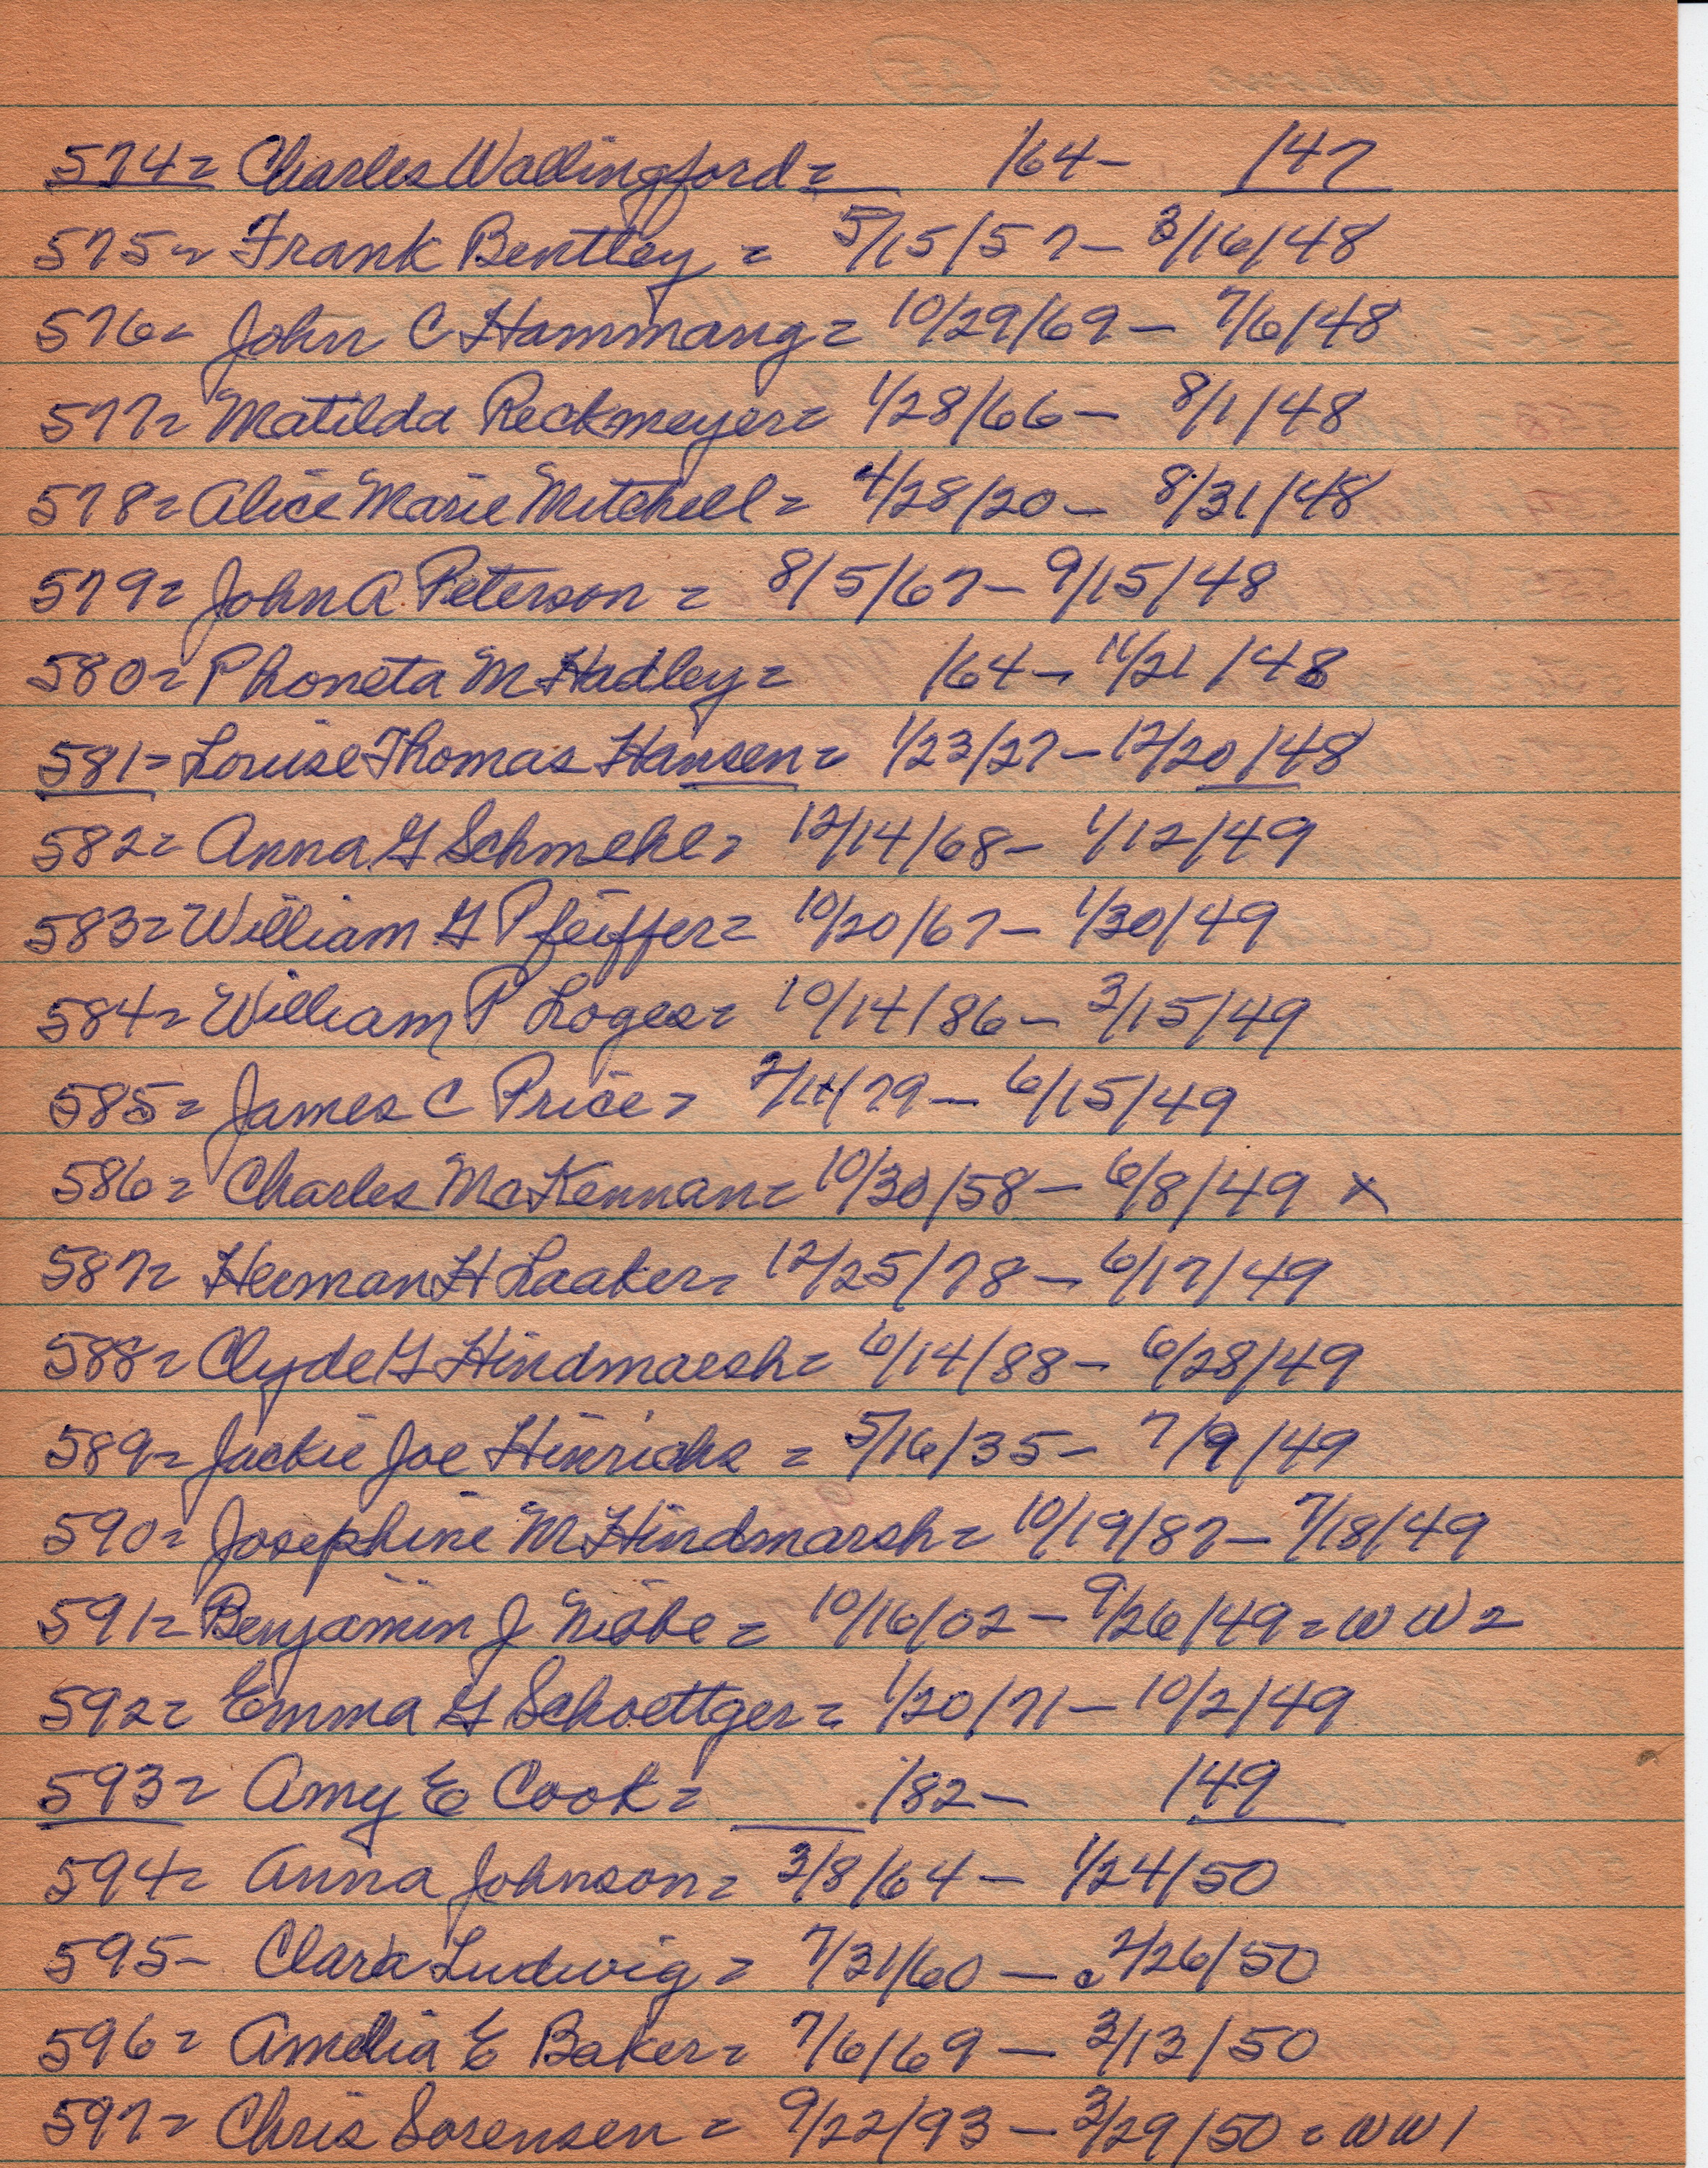 574= Charles Wallingford= /64- /47
575= Frank Bentley = 5/15/57- 3/16/48
576= John C Hammang= 10/29/69- 7/6/48
577= Matilda Reckmeyer= 1/28/66- 8/1/48
578= Alice Marie Mitchell= 4/28/20- 8/31/48
579= John A. Peterson = 8/5/67- 9/15/48
580= Phoneta M Hadley= /64- 11/21/48
581= Louise Thomas Hansen= 1/23/27-12/20/48
582= Anna G Schmehl= 12/14/68- 1/12/49
583= William G Pfeiffer= 10/20/67- 1/30/49
584= William P Loges= 10/14/86- 3/15/49
585= James C Price= /79- 6/15/49
586= Charles McKennan= 10/30/58- 6/8/49 x
587= Herman H Laaker= 12/25/78- 6/17/49
588= Clyde G Hindmarsh= 6/14/88- 6/28/49
589= Jackie Joe Hinrichs = 5/16/35- 7/9/49
590= Josephine M Hindmarsh= 10/19/87- 7/18/49
591= Benjamin J = 10/16/02- 9/26/49= WW2
592= Emma G Schoettger= 1/20/71- 10/2/49
593= Amy E Cook= /82- /49
594= Anna Johnson= 3/8/64- 1/24/50
595- Clara Ludwig= 7/31/60- 2/26/50
596= Amelia E Baker= 7/6/69- 3/13/50
597= Chris Sorensen= 9/22/93- 3/29/50= WW1